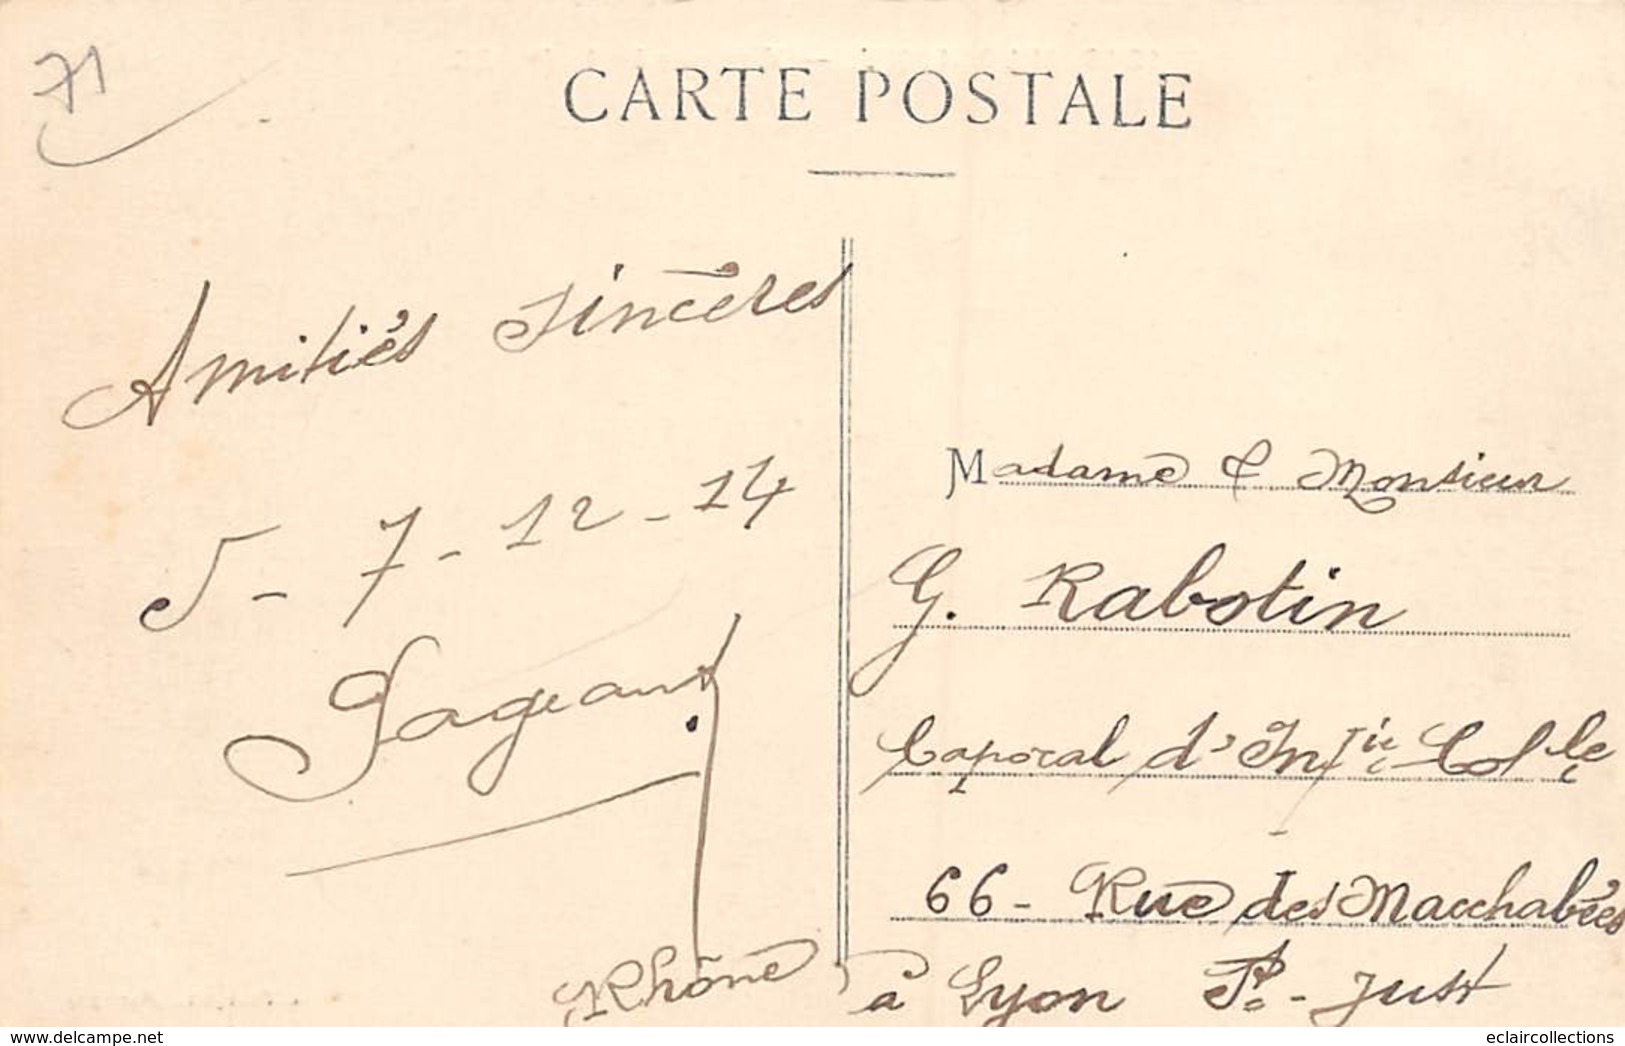 71
CARTE POSTALE
Amitiés sincères
5 - 7 - 12 - 14
Madame & Monsieur
G. Rabotin
Caporal d'Infie Colle
66 - Rue des Macchabées
à Lyon St. - Just
Rhône
eclaircollections